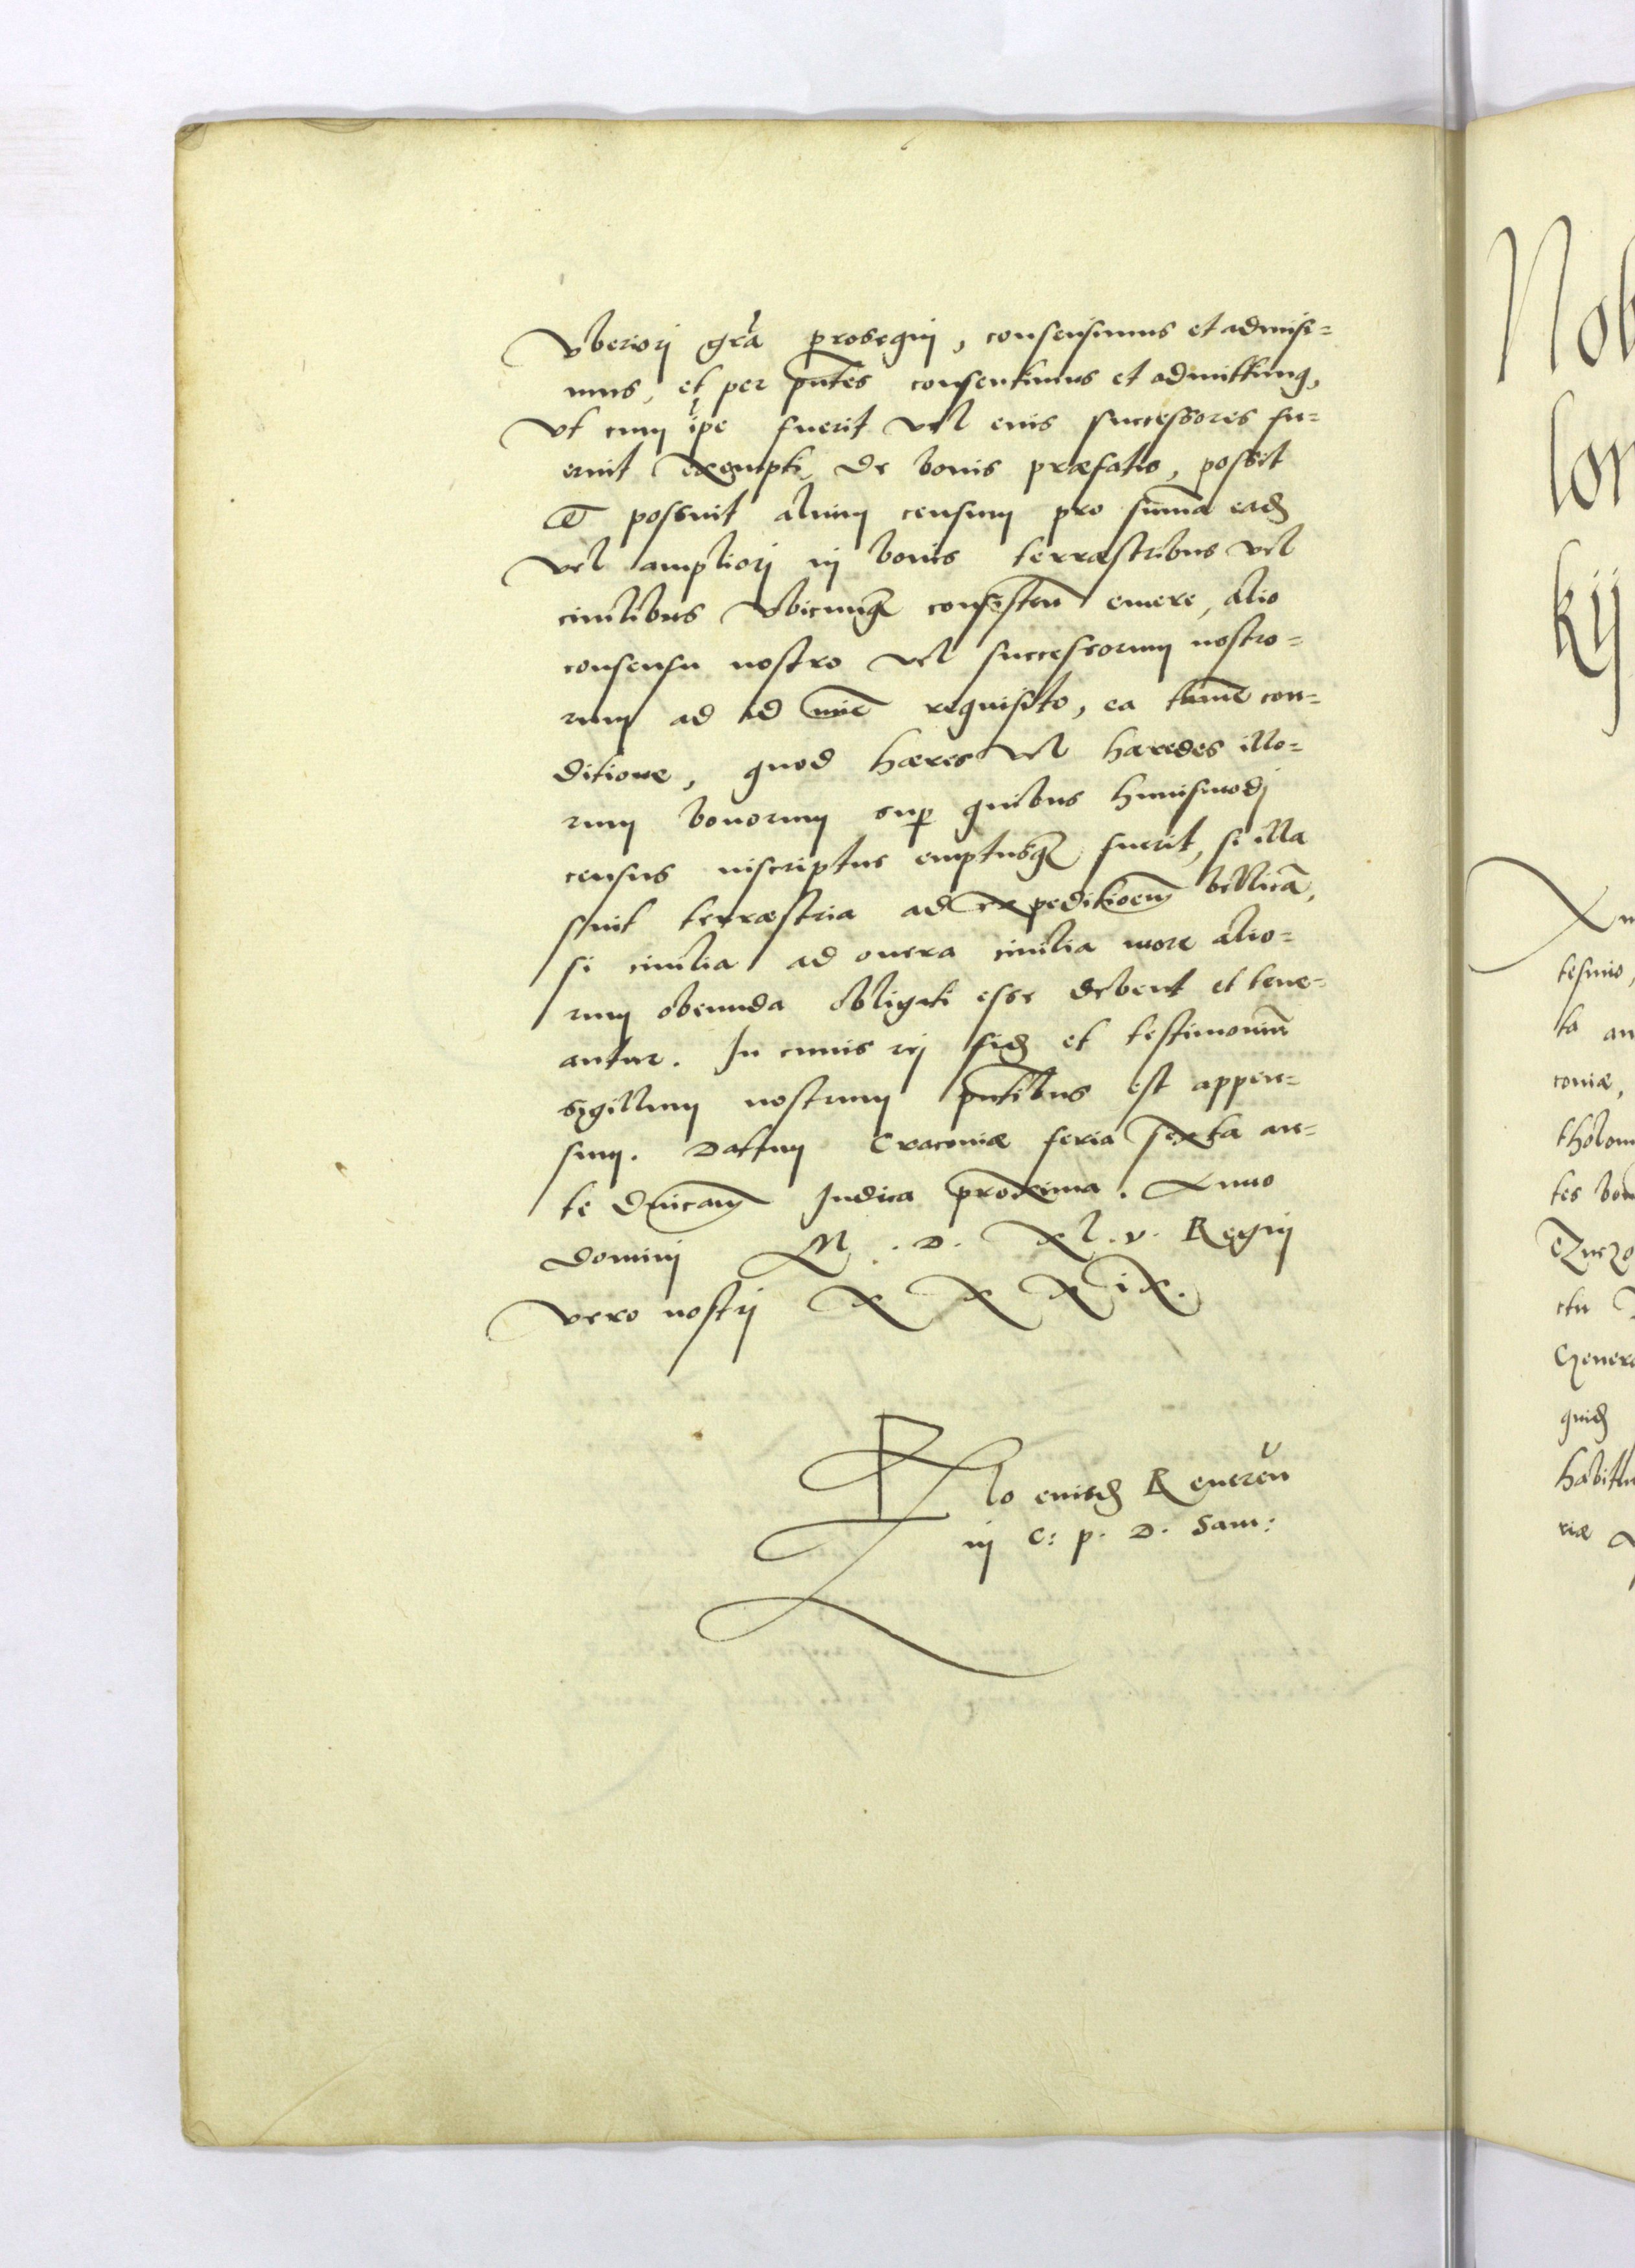 Vberiori gr̃a prosequi, consensimus et admisi=
mus, et per p̃ntes consentimus et admittimus,
vt cum ip̃e fuerit vel eius successores fu=
erint exempti de bonis præfatis, possit
et possint alium censum pro summa eadẽ
vel ampliori in bonis terræstribus vel
ciuilibus vbicunq3 consisteñ emere, alio
consensu nostro vel successorum nostro=
rum ad id mĩe requisito, ea tamẽ con=
ditione, quod hæres vel hæredes illo=
rum bonorum sup quibus huiusmodi
census inscriptus emptusq3 fuerit, si illa
sunt terræstria ad expeditioem̃ bellicã,
si ciuilia ad onera ciuilia more alio=
rum obeunda obligati esse debent et tene=
antur. In cuius rei fidẽ et testimoniũ
sigillum nostrum p̃ntibus est appen=
sum. Datum Cracouiæ feria sexta an=
te Dñicam Iudica proxima. Anno
Domini M. D. xl. v. Regni
vero nostri x x x i x.
Rlo eiusdẽ Reuereñ
in C: p. D. Sam:
Nob
lon
kij
An
tesimo,
ta an
couiæ,
tholom
tes bon
ctu
Genera
quidẽ
habitu
riæ